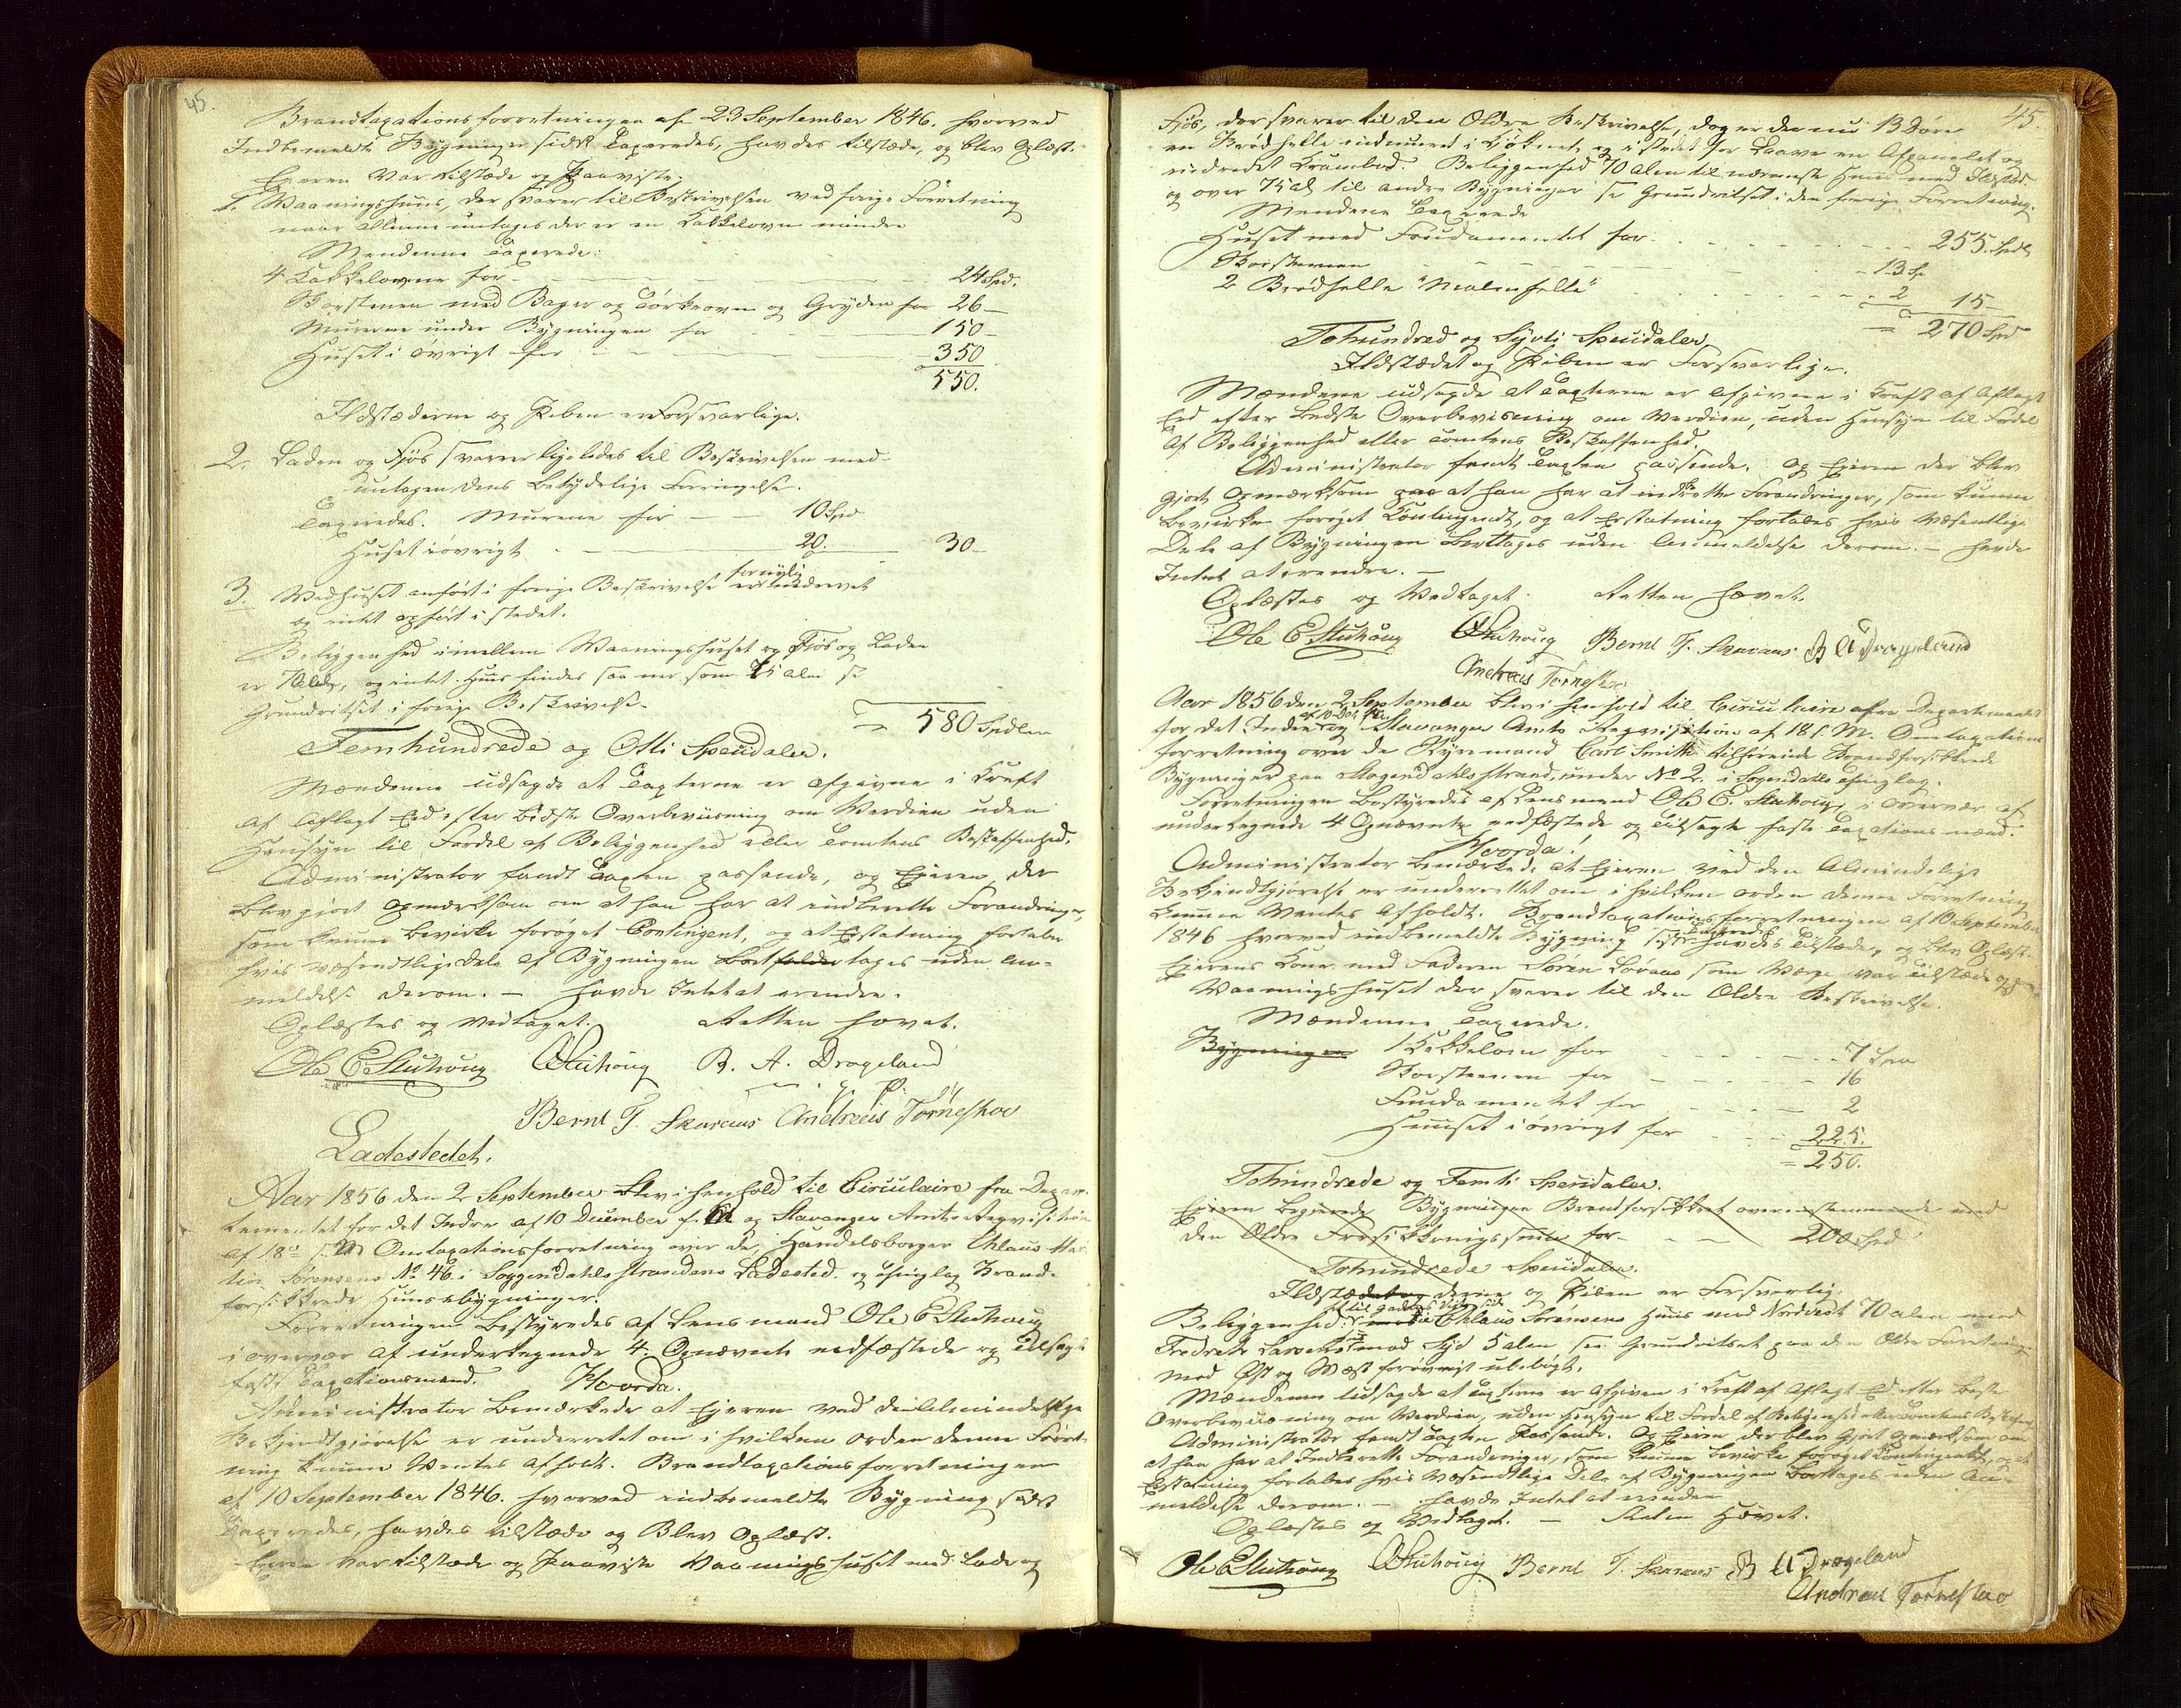 45.
Brandtaxationsforretningen af 23 September 1846. hvorved
Indbemeldte Bygninger sidst Taxeredes, havdes tilstæde, og blev Oplæst.
Eieren var tilstæde og Paaviste:
1. Vaaningshuus, der svarer til Beskrivelsen ved forige Forretning
naar alleene undtages der er en Kakkelovn mindre
Mændene Taxerede:
4 Kakkelovne for 24 Spd.
Skorstenen med Bager og Tørkeovn og Gryden for 26 –
Murene under Bygningen for 150 –
Huset i øvrigt for 350
550.
Ildstæderne og Piben er Forsvarlige.
2. Laden og Fjøs svarer ligeledes til Beskrivelsen med
undtagen dens betydelige Forringelse.
Taxeredes. Murene for 10 Spd
Huset iøvrigt 20. 30 –
3. Vedhuset anført i forige Beskrivelse er fornylig nedrevet
og intet opført i stedet.
Beliggenhed imellem Vaaningshuset og Fjøs og Laden
er 70 Al., og intet Huus findes saa nær som 75 alen se
Grundritset i forige Beskrivelse.
= 580 Spdlr
Femhundrede og Otti Speudaler.
Mændene udsagde at Taxterne er afgivne i Kraft
af aflagt Eed efter bedste Overbeviisning om Verdien uden
Hensyn til Fordel af Beliggenhed eller Tomtens Beskaffenhed.
Administrator fandt Taxten passende, og Eieren der
blev gjort opmærksom om at han har at indberette Forandringer,
som kunne bevirke forøget Contingent, og at Erstatning fortabes
hvis væsendtlige dele af Bygningen borttages uden An-
meldelse derom. – havde Intet at erindre.
Oplæstes og vedtaget. Retten hævet.
Ole E Stuhoug OStuhoug B. A. Drageland
Bernt T. Skaraas Andreas Tørneskov
Ladestedet.
Aar 1856 den 2 September blev i henhold til Circulaire fra Depar-
tementet for det Indre af 10 December f. A. og Stavanger Amts Reqvisition
af 18de s. M. Omtaxationsforretning over de, Handelsborger Chlaus Mar-
tin Sørensens No 46 i Soggendahls strandens Ladested og Thinglag Brand-
forsikkrede Huusebygninger.
Forretningen bestyredes af Lensmand Ole E Stuhoug
i overvær af undertegnede 4. Opnævnte edfæstede og Tilsagte
faste Taxationsmænd. Hvorda.
Administrator bemærkede at Eieren ved den Almindelige
Bekjendtgjørelse er underrettet om i hvilken orden denne Forret-
ning kunne Ventes afholdt. Brandtaxationsforretningen
af 10 September 1846. hvorved indbemeldte Bygning sidst
Taxeredes, havdes tilstæde og Blev Oplæst.
Eieren var tilstæde og Paaviste Vaaningshuset med Lade og
45.
Fjøs, der svarer til den Ældre Beskrivelse, dog er der nu 13 Døre
en Brødhelle indmuret i Kjøkenet og istedet for Laave en Afpanelet og
indredet Krambod. Beliggenhed 70 Alen til nærmeste Huus med Ildsted
og over 75 Al til andre Bygninger se Grundritset i den forige Forretning.
Mændene Taxerede
Huset med Fundamentet for 255 Spd
Skorstenen 13 Sp
2 Brødhelle "Malenhelle" 2 15 –
= 270 Spd
Tohundred og Sytti Speudaler
Ildstædet og Piben er Forsvarlige.
Mændene udsagde at Taxterne er afgivne i Kraft af Aflagt
Eed efter bedste Overbevisning om Verdien, uden Hensyn til Fordel
af Beliggenhed eller Tomtens Beskaffenhed.
Administrator fandt Taxten passende. og Eieren der blev
gjort opmærksom paa at han har at indberette Forandringer, som kunne
bevirke forøget Kontingendt, og at Erstatning fortabes hvis Væsentlige
Dele af Bygningen borttages uden Anmeldelse derom. – havde
Intet at erindre. –
Oplæstes og Vedtaget. Retten hævet.
Ole E Stuhoug OStuhoug Bernt T. Skaraas B A Drageland
Andreas Tørneskov
Aar 1856 den 2 September blev i henhold til Circulaire fra Departementet
for det Indre af 10 Dec. f. A. og Stavanger Amts Reqvisition af 18 s. M. Omtaxations
forretning over de Styrmand Carl Smith tilhørende Brandforsikkrede
Bygninger paa Sogendahls strand, under No 2. i Sogendahls Thinglag.
Forretningen bestyredes af Lensmand Ole E. Stuhoug, i overvær af
undertegnede 4 Opnævnte, edfæstede og tilsagte faste Taxations mænd.
Hvorda!
Administrator bemærkede at Eieren ved den Almindelige
Bekjendtgjørelse er underrettet om i hvilken orden denne Forretning
kunne Ventes Afholdt. Brandtaxationsforretningen af 10 September
1846 hvorved indbemeldte Bygning sidst Taxeredes havdes tilstæde, og blev Oplæst.
Eierens Kone med Faderen Søren Løvaas som Værge var tilstæde og
Vaaningshuset der svarer til den Ældre Beskrivelse.
Mændene Taxerede.
Bygningen 1 Kakkelovn for 7 Spd
Skorstenen for 16
Fundamentet for 2
Huuset i øvrigt for 225.
= 250.
Tohundrede og Femti Speudaler.
Eieren begjerede Bygningen Brandforsikkret overensstemmende med
den Ældre Forsikkringssum for 200 Spd
Tohundrede Speudaler.
Ildstæderne og Piben er Forsvarlig.
Beliggenhed: Chlaus Sørensens Huus mod Nordvest 70 alen mod
Fredrik Larsens mod Syd 5 alen see Grundritset paa den Ældre Forretning
mod Øst og Væst forøvrigt ubebygt.
Mændene Udsagde at Taxterne er afgiven i Kraft af Aflagt Ed efter beste
Overbeviisning om Verdien, uden Hensyn til Fordel af Beliggenhed eller Tomtens Beskaffenhed
Administrator fandt Taxten Passende. Og Eieren der blev gjort opmærksom om
at han har at Indberette Forandringer, som kunne bevirke forøget Contingendt, og at
Erstatning fortabes hvis væsendtlige Dele af Bygningen borttages uden An-
meldelse derom. – havde Intet at erindre
Oplæstes og Vedtaget. – Retten Hævet.
Ole E Stuhoug OStuhoug Bernt T. Skaraas B A Drageland
Andreas Tørneskov